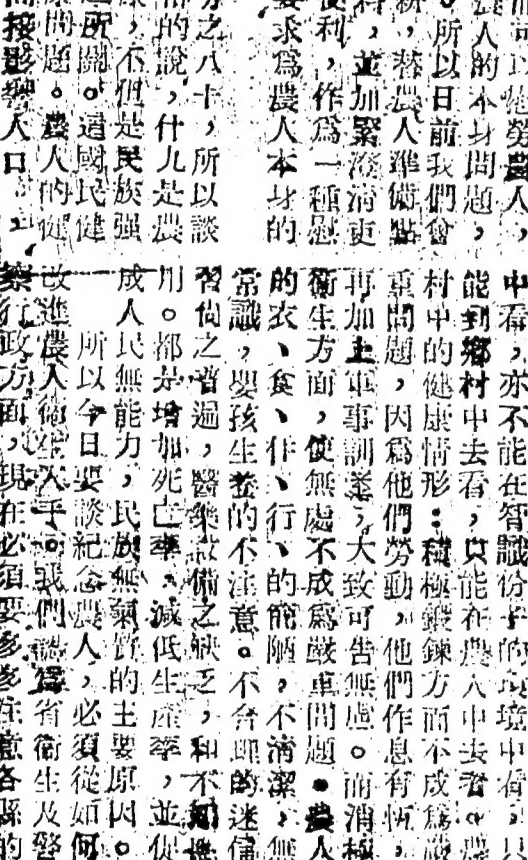 可以慰勞農人，
農人的本身問題，
。所以日前我們會
，替農人準備點
，並加緊澄清更
便利，作爲一種慰
要求爲農人本身的
分之八十，所以談
部的說，什九是農
，不但是民族强
之所關。這國民健
康問題。農人的健
間接影響人口
中看，亦不能在智識份子的環境中看，只
能到鄉村中去看，只能在農人中去看。農
村中的健康情形：積極鍛鍊方面不成爲
重問題，因爲他們勞動，他們作息有恆，
再加上軍事訓練，大致可告無慮。而消極
衞生方面，使無處不成爲嚴重問題。農人
的衣、食、住、行、的簡陋，不清潔，無
常識，嬰孩生養的不注意。不合理的迷信
習尚之普遍，醫藥設備之缺乏，和不
用。都是增加死亡率，減低生產率，並使
成人民無能力，民族無氣質的主要原因。
所以今日要談紀念農人，必須從如何
改進農人衞生入手。我們認爲省衞生及警
察行政方面，現在必須要多多注意各縣的